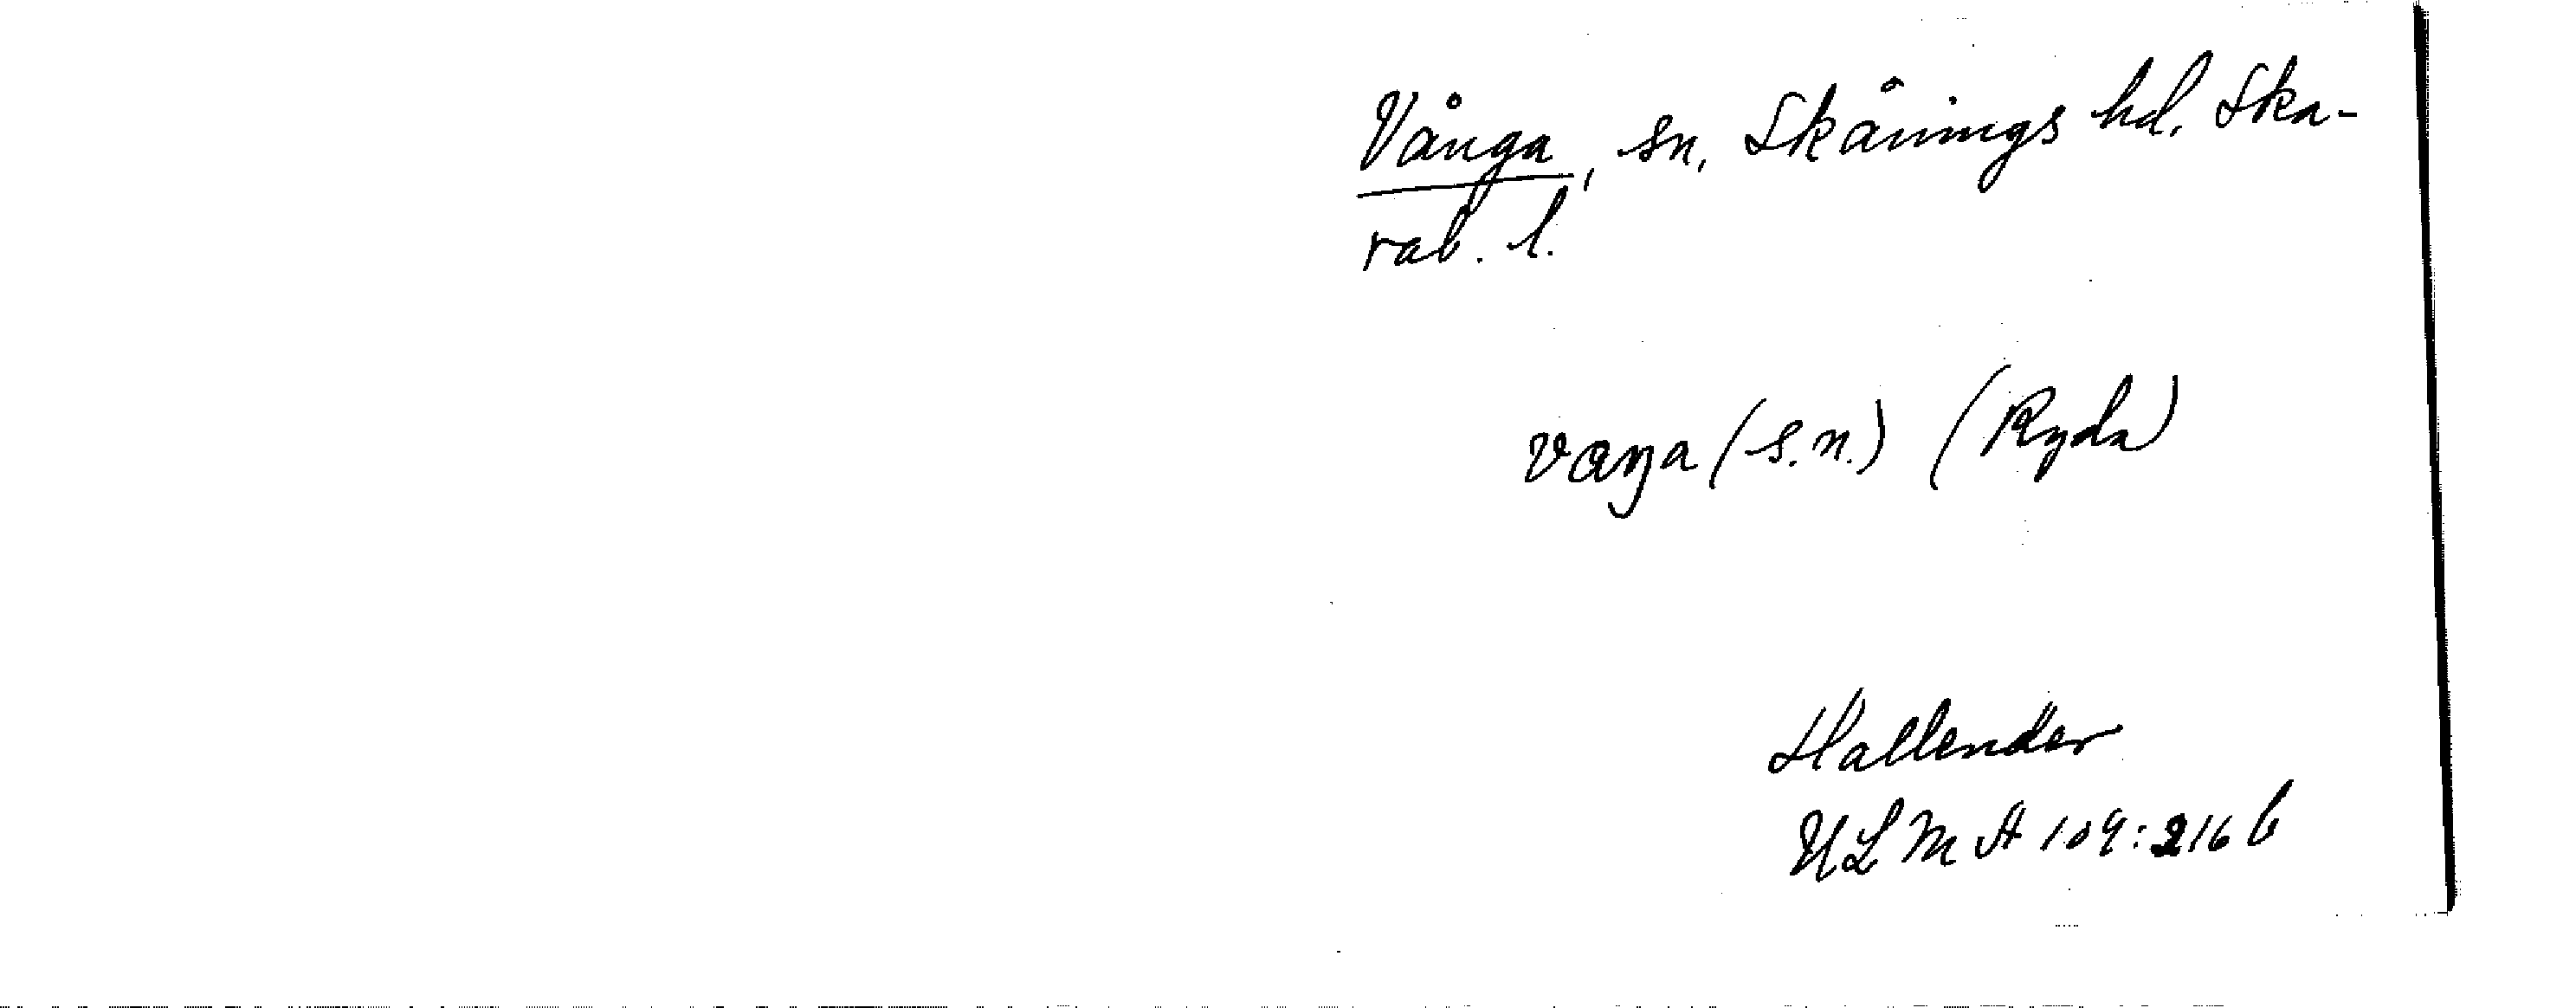 Vånga, sn, Skånings hd. Ska-
rab. l.
vaŋa (s.n.) (Ryda)
Hallender
ULMA 109:216 b